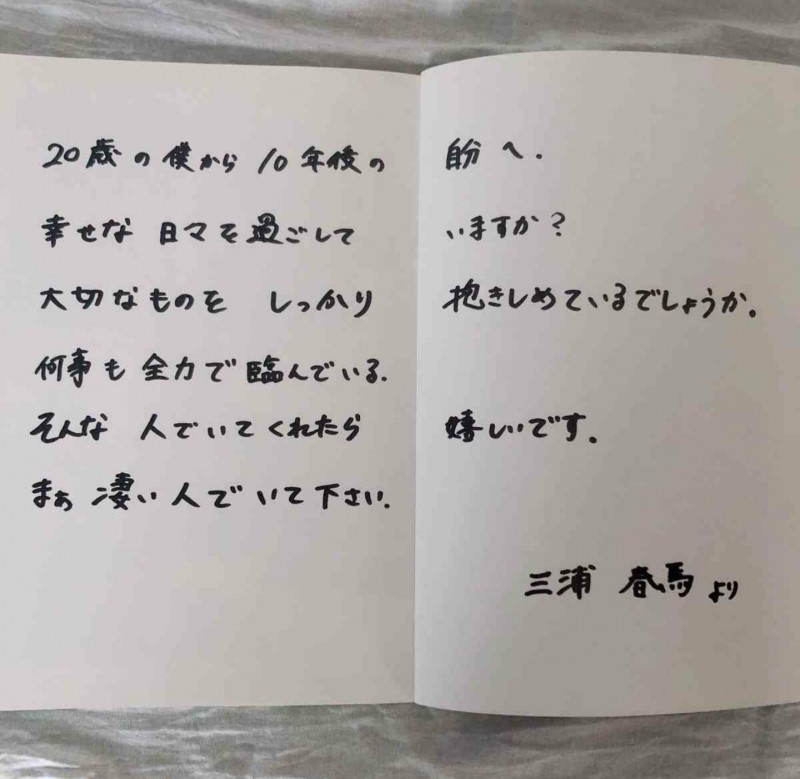 20歳の僕から 10年後の 自分へ.
幸せな 日々を過ごして いますか?
大切なものを しっかり 抱きしめているでしょうか。
何事も 全力で 臨んでいる.
そんな 人でいてくれたら 嬉しいです。
まぁ 凄い人でいて下さい.
三浦 春馬 より